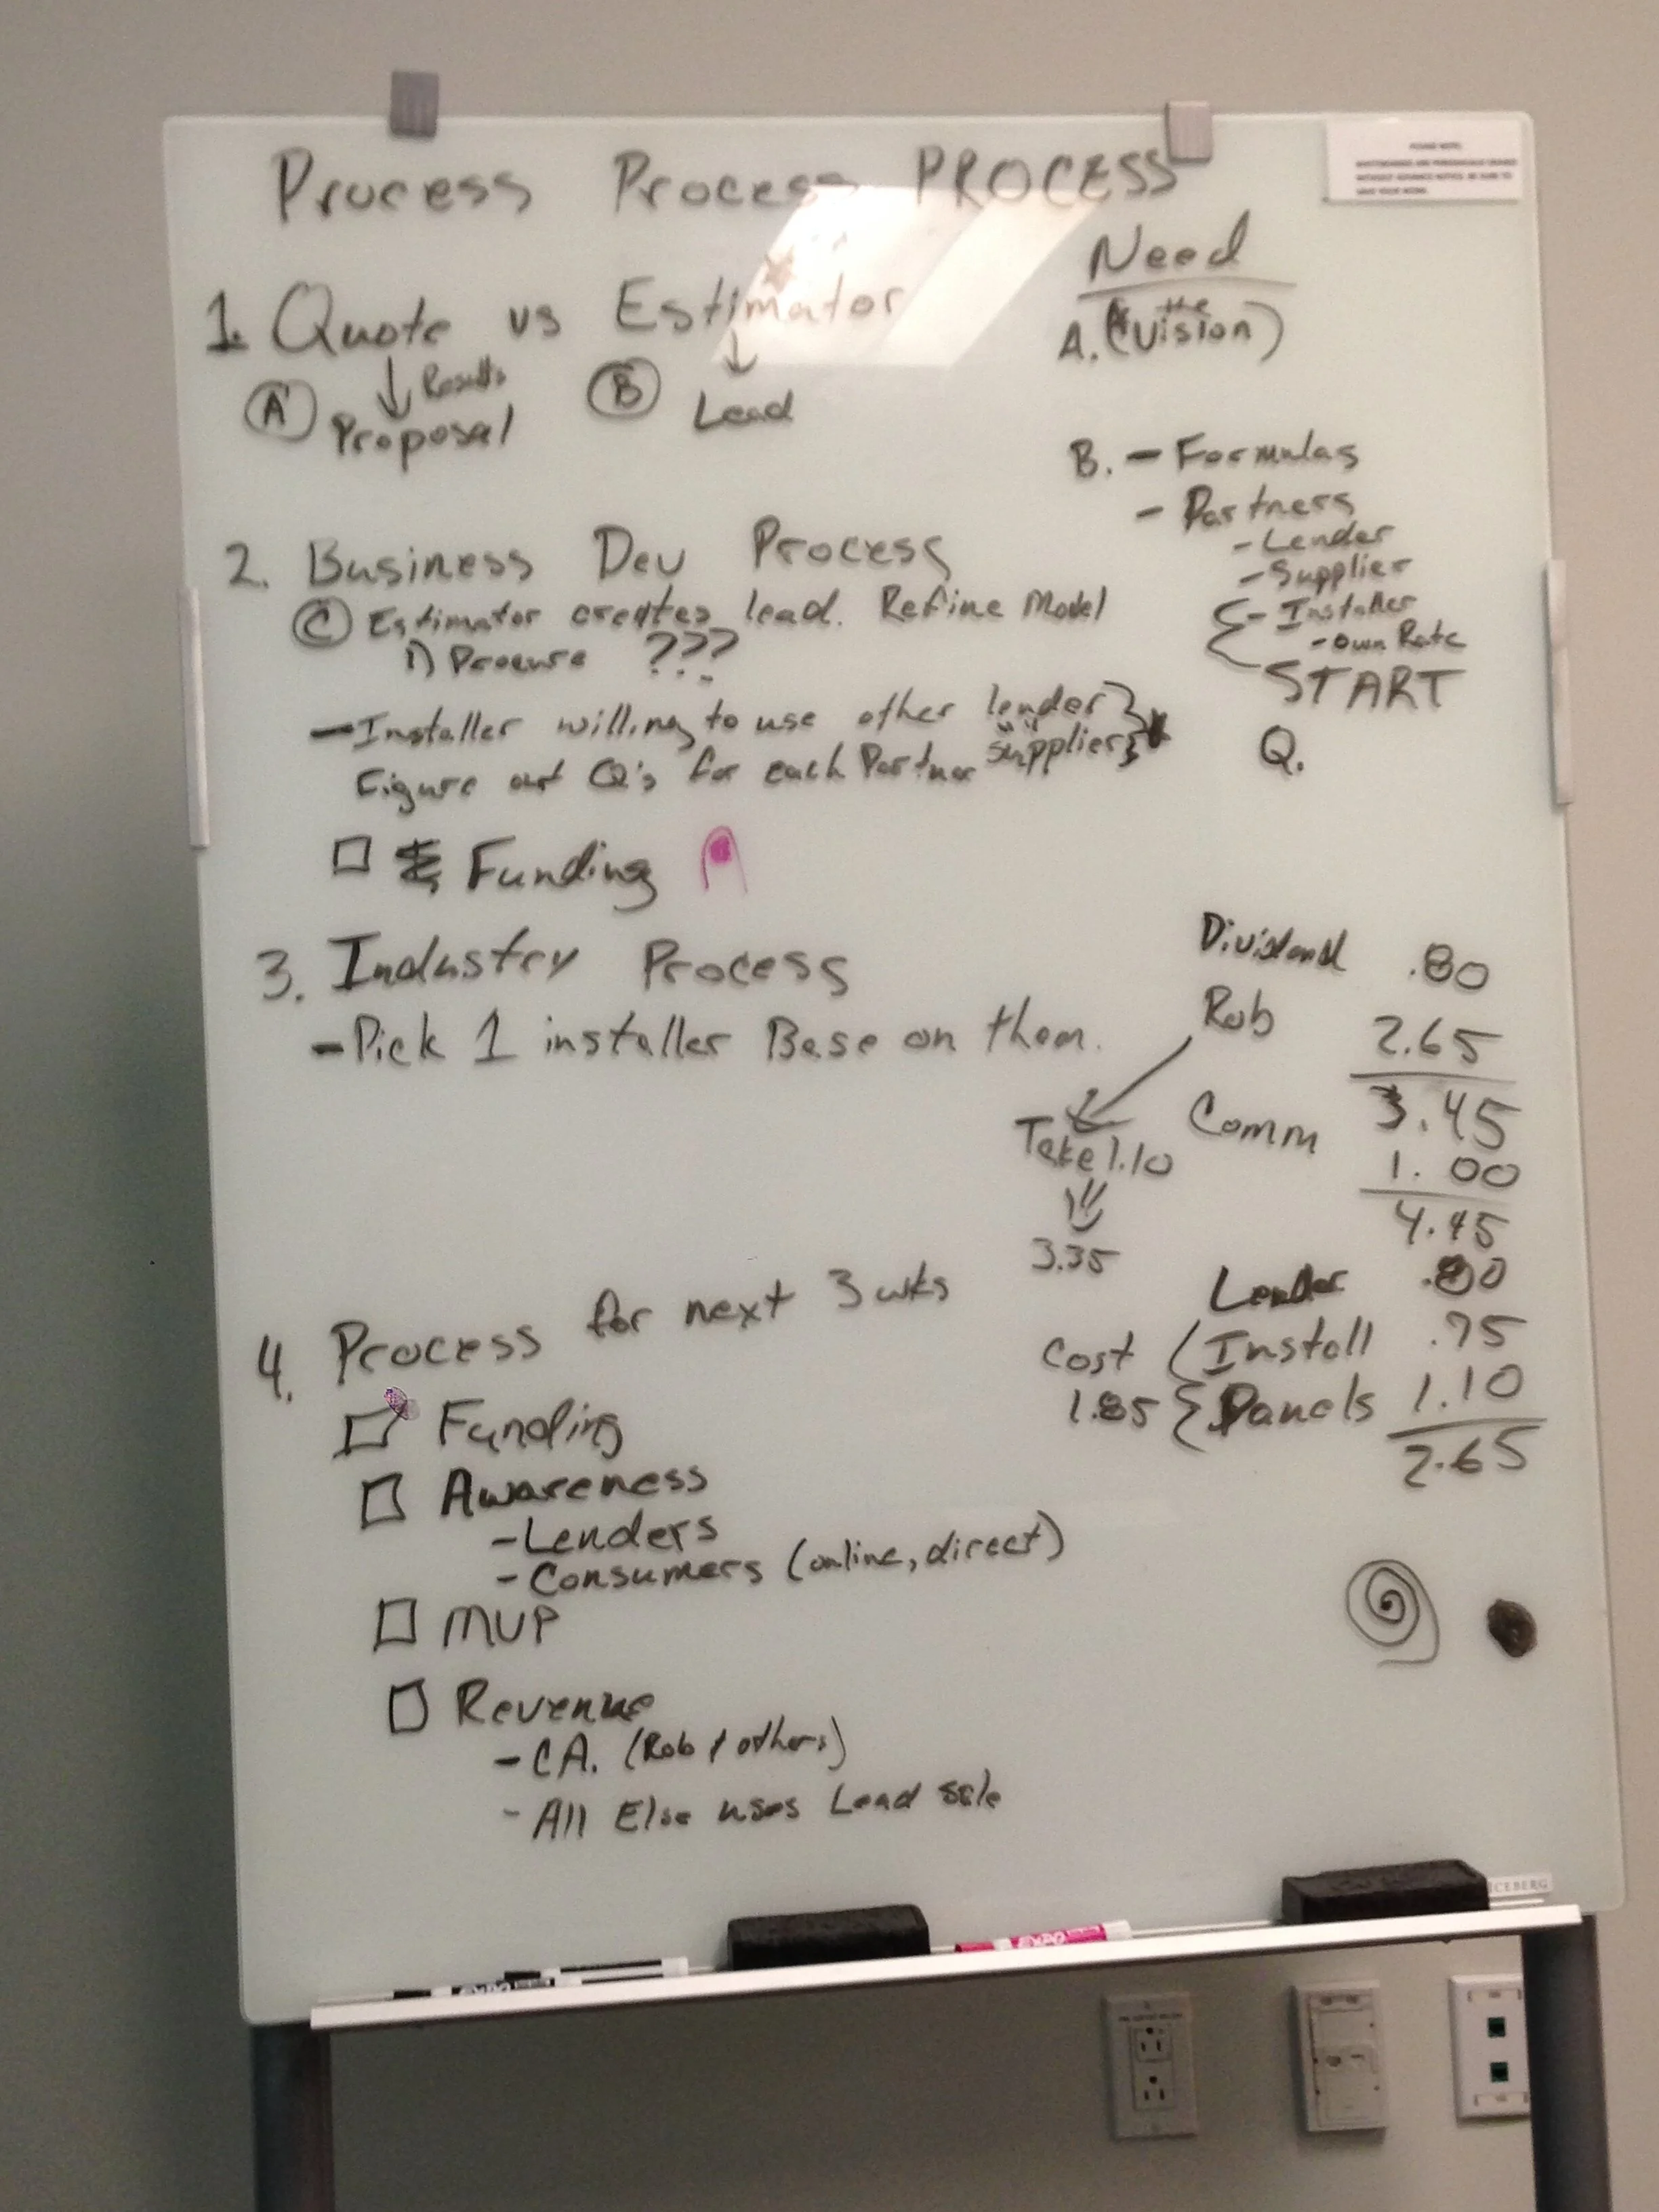 Process Process PROCESS
1. Quote vs Estimator
A Results B
Proposal Lead
Need
A. (the Vision)
B. - Formulas
- Partners
- Lender
- Supplier
- Installer
- own Rate
START
Q.
2. Business Dev Process
C Estimator creates lead. Refine Model
1) Procure ???
- Installer willing to use other lender
supplier
Figure out Q's for each Partner
Funding
3. Industry Process
- Pick 1 installer Base on them.
Dividend .80
Rob 2.65
3.45
Comm 1.00
4.45
Take 1.10
3.35
Lender .80
Install .75
Panels 1.10
2.65
Cost
1.85
4. Process for next 3 wks
Funding
Awareness
- Lenders
- Consumers (online, direct)
MVP
Revenue
- CA. (Rob & others)
- All Else uses Lead sale
EXPO
EXPO
ICEBERG